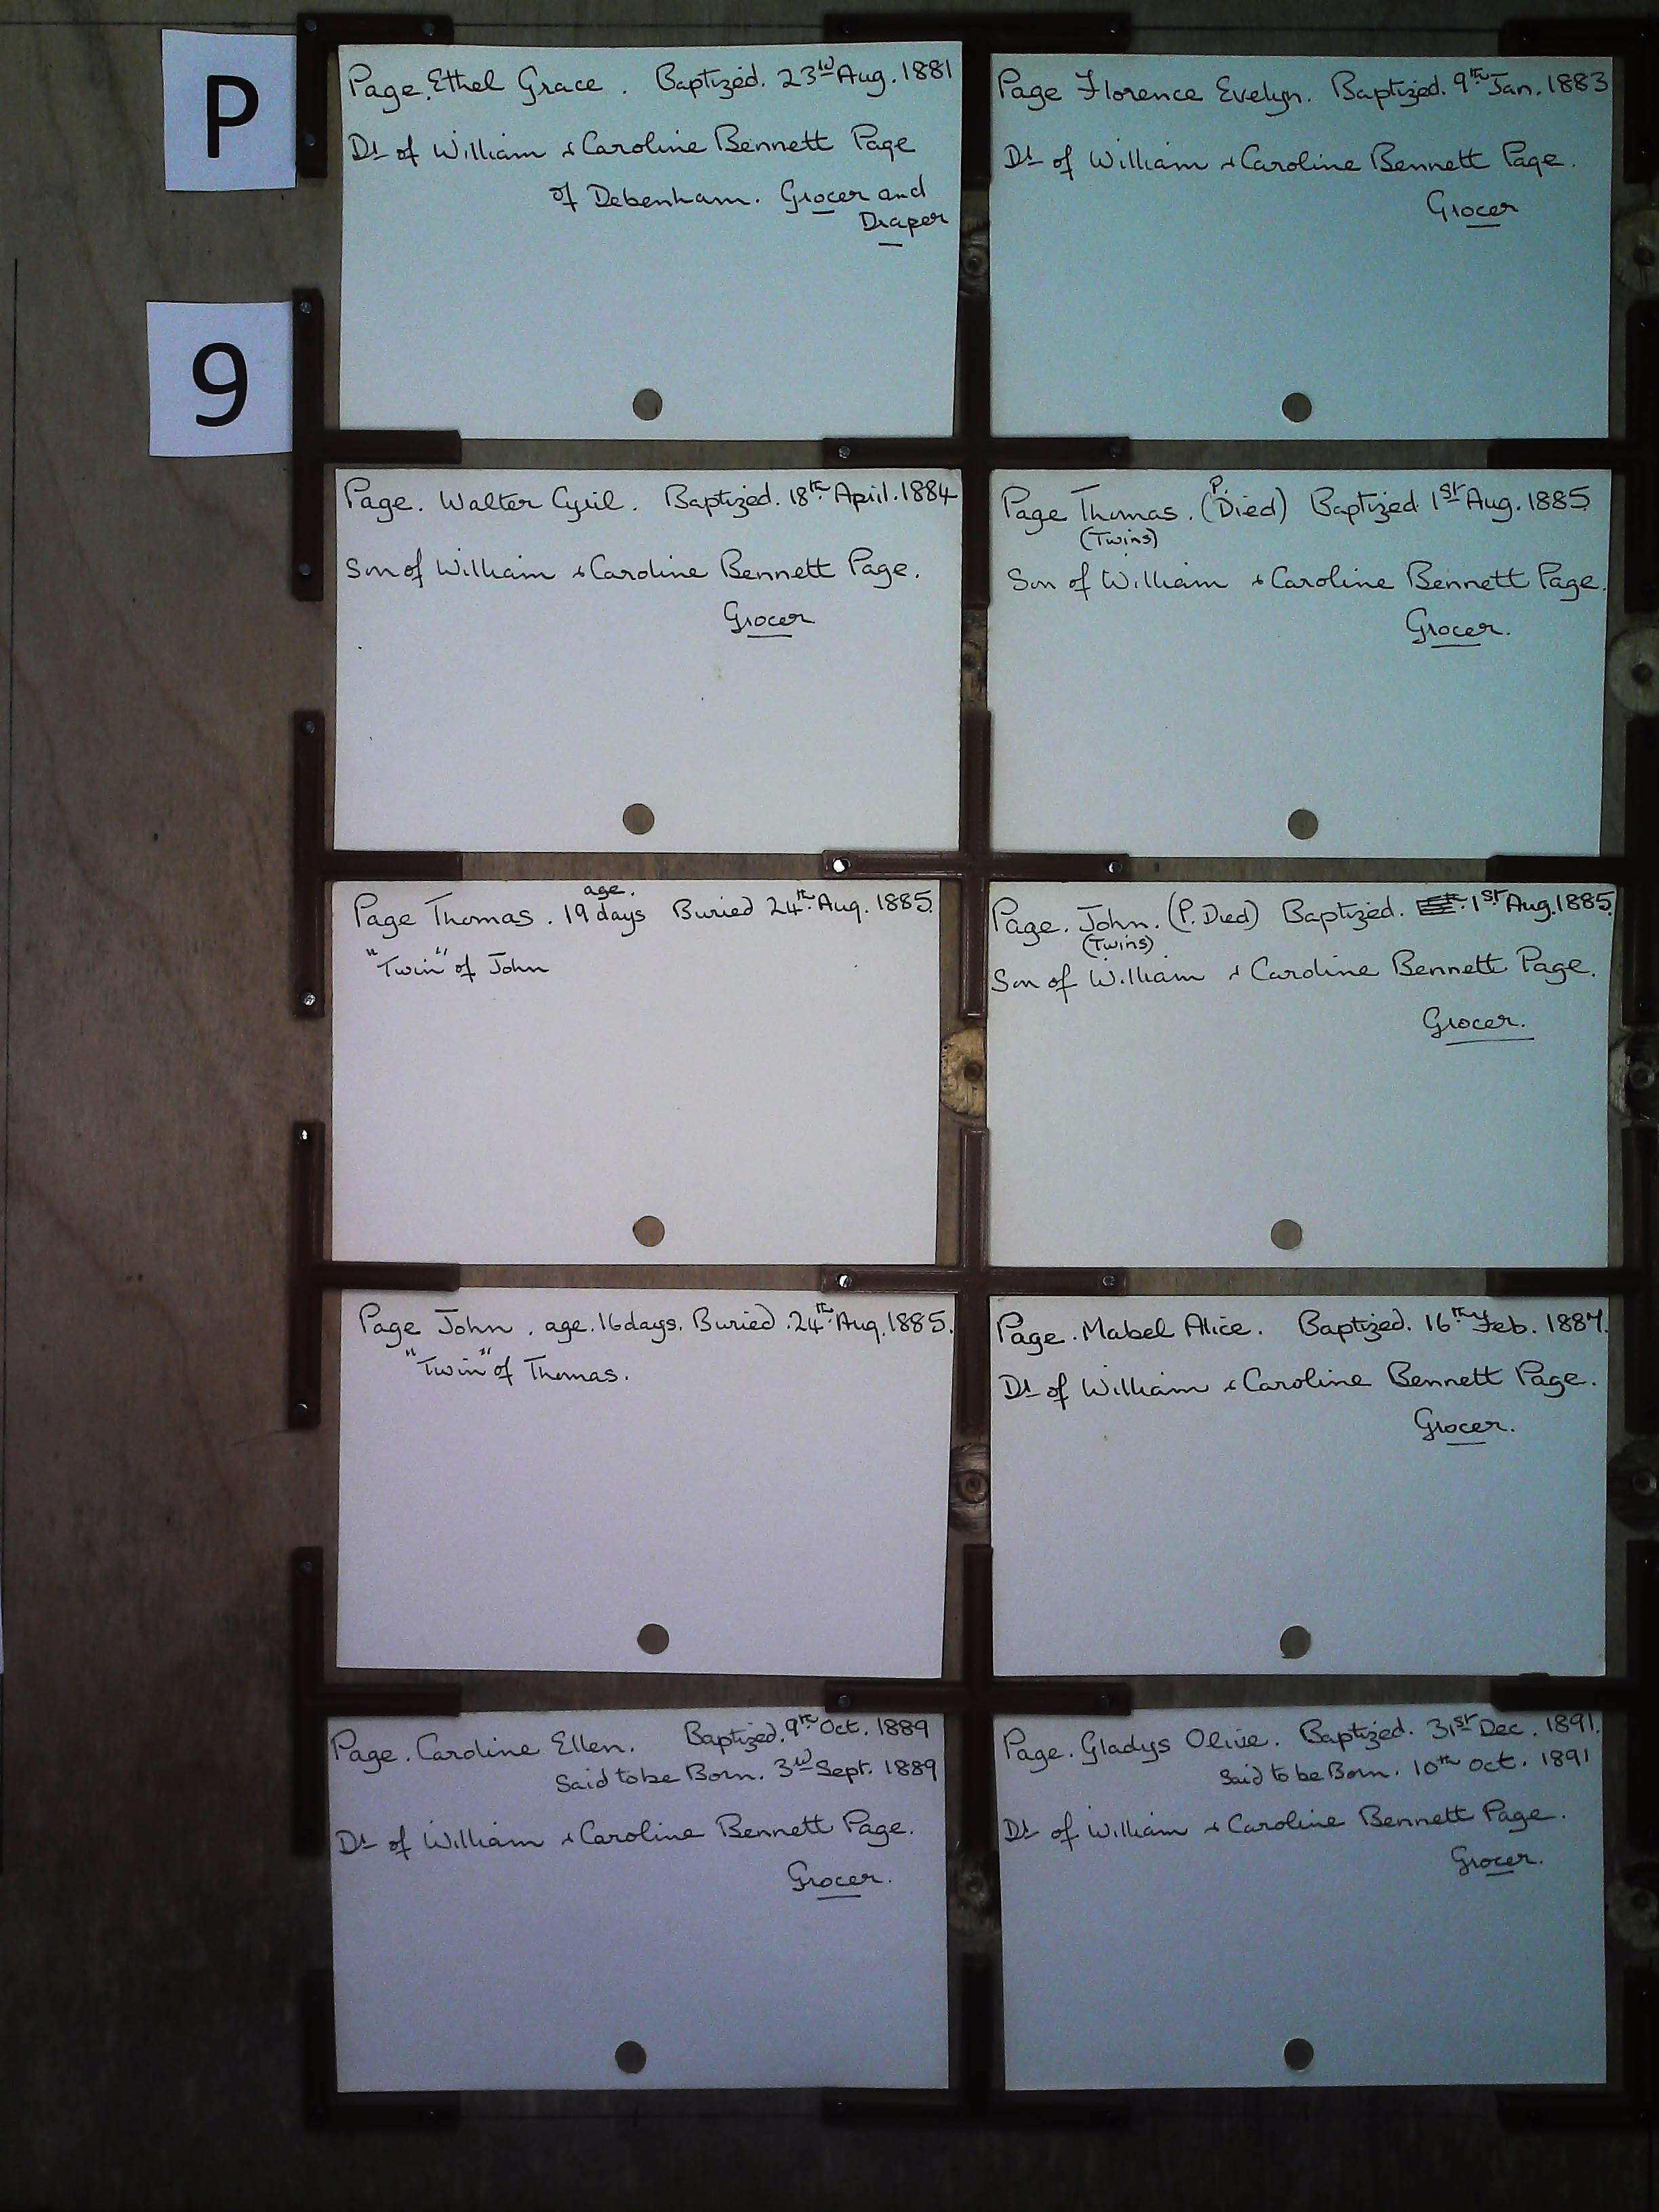 P
9
Page. Ethel Grace. Baptized. 23rd Aug. 1881
Dt of William & Caroline Bennett Page
of Debenham. Grocer and
Draper
Page Florence Evelyn. Baptized. 9th Jan. 1883
Dt of William & Caroline Bennett Page.
Grocer
Page. Walter Cyril. Baptized. 18th April. 1884
Son of William & Caroline Bennett Page.
Grocer
Page Thomas. (P. Died) Baptized 1st Aug. 1885
(Twins)
Son of William & Caroline Bennett Page.
Grocer.
Page Thomas. age. 19 days Buried 24th Aug. 1885.
"Twin" of John
Page. John. (P. Died) Baptized. 1st Aug. 1885.
(Twins)
Son of William & Caroline Bennett Page.
Grocer.
Page John. age. 16 days. Buried. 24th Aug. 1885.
"Twin" of Thomas.
Page. Mabel Alice. Baptized. 16th Feb. 1887.
Dt of William & Caroline Bennett Page.
Grocer.
Page. Caroline Ellen. Baptized. 9th Oct. 1889
Said to be Born. 3rd Sept. 1889
Dt of William & Caroline Bennett Page.
Grocer.
Page. Gladys Olive. Baptized. 31st Dec. 1891.
Said to be Born. 10th Oct. 1891
Dt of William & Caroline Bennett Page.
Grocer.